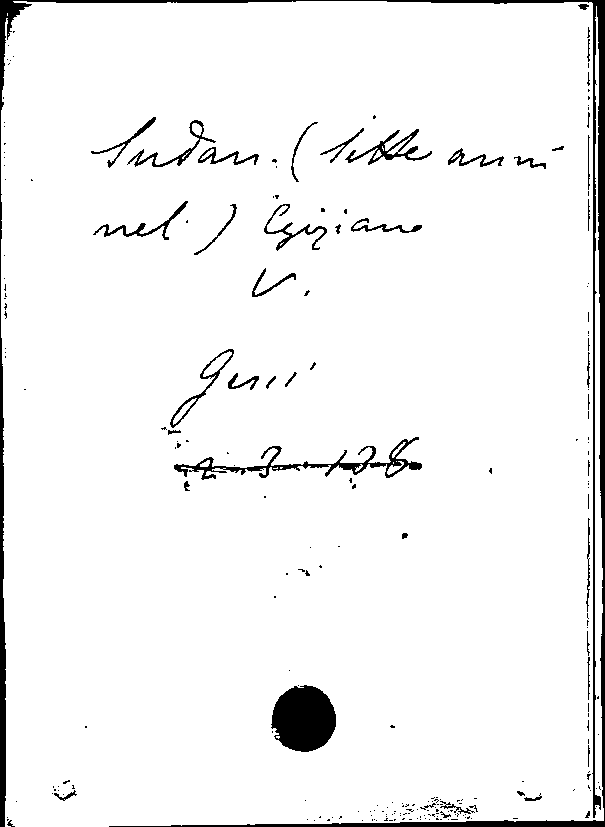 Sudan. (Sette anni
nel) Egiziano
V.
Gessi
2-3-138